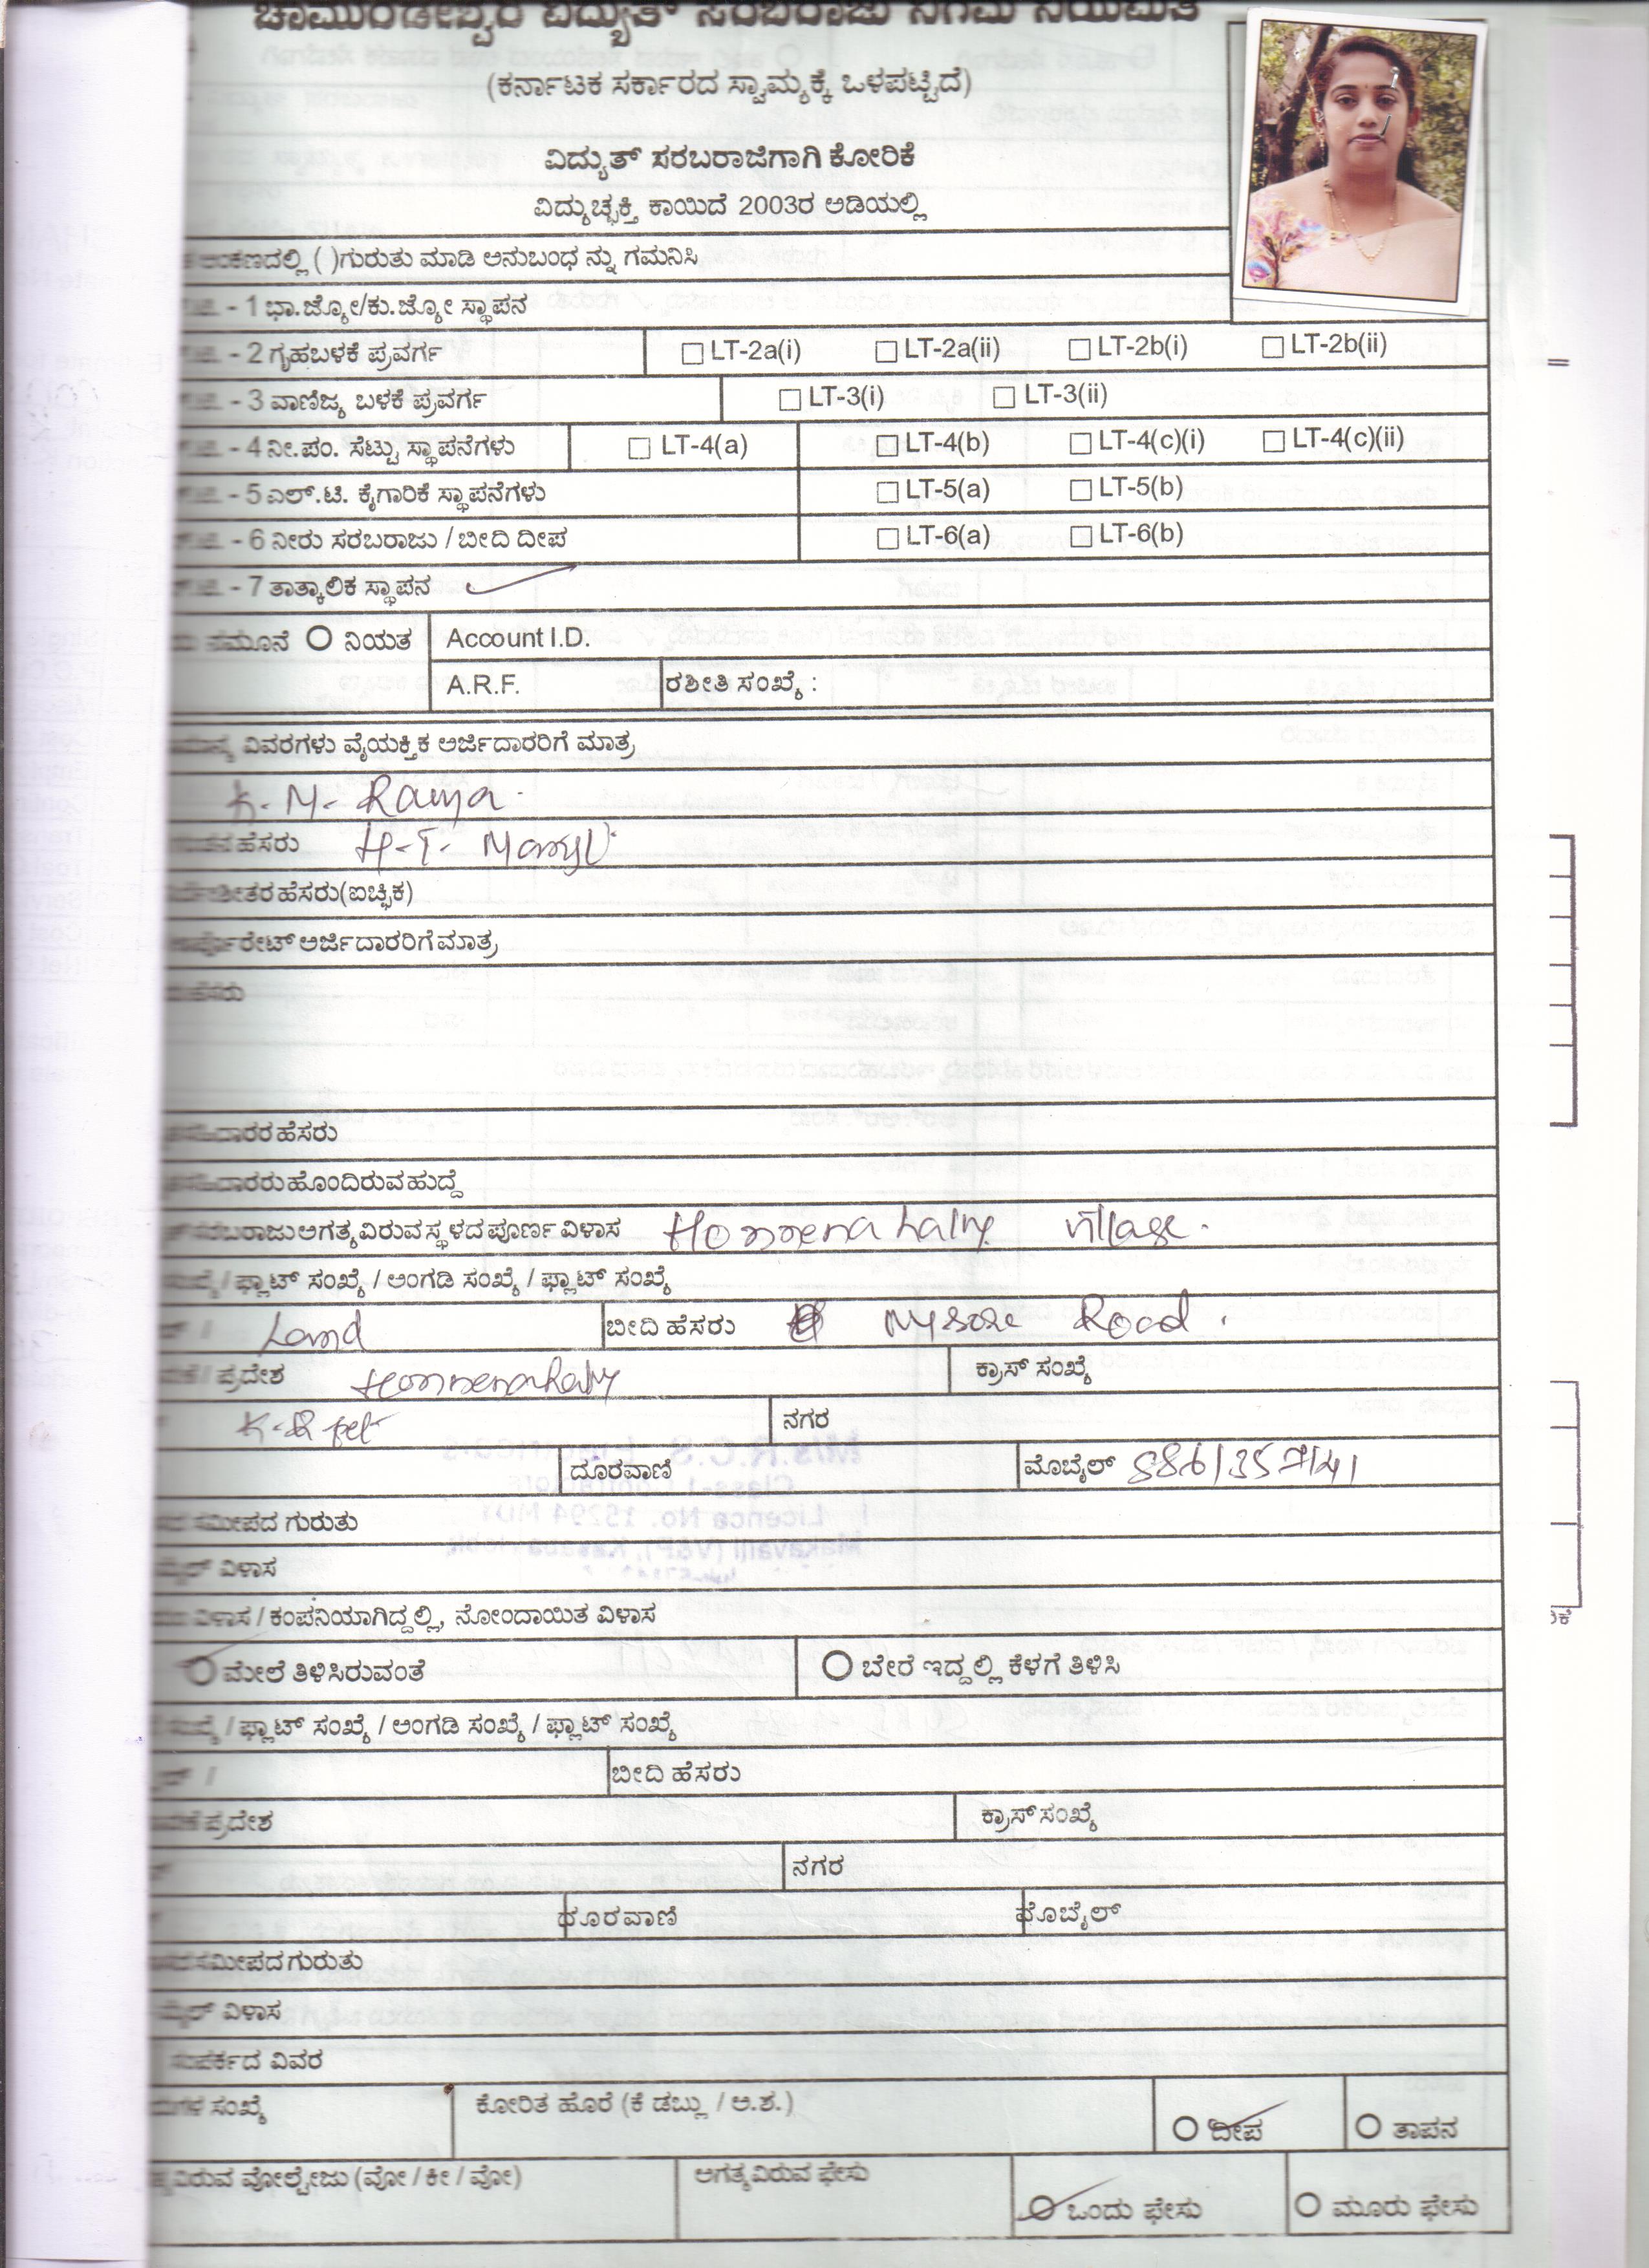 ಚಾಮುಂಡೇಶ್ವರಿ ವಿದ್ಯುತ್ ಸರಬರಾಜು ನಿಗಮ ನಿಯಮಿತ
(ಕರ್ನಾಟಕ ಸರ್ಕಾರದ ಸ್ವಾಮ್ಯಕ್ಕೆ ಒಳಪಟ್ಟಿದೆ)
ವಿದ್ಯುತ್ ಸರಬರಾಜಿಗಾಗಿ ಕೋರಿಕೆ
ವಿದ್ಯುಚ್ಛಕ್ತಿ ಕಾಯಿದೆ 2003ರ ಅಡಿಯಲ್ಲಿ
ಅಂಕಣದಲ್ಲಿ ( )ಗುರುತು ಮಾಡಿ ಅನುಬಂಧ ನ್ನು ಗಮನಿಸಿ
- 1 ಭಾ.ಜ್ಯೋ/ಕು.ಜ್ಯೋ ಸ್ಥಾಪನ
- 2 ಗೃಹಬಳಕೆ ಪ್ರವರ್ಗ LT-2a(i) LT-2a(ii) LT-2b(i) LT-2b(ii)
- 3 ವಾಣಿಜ್ಯ ಬಳಕೆ ಪ್ರವರ್ಗ LT-3(i) LT-3(ii)
- 4 ನೀ.ಪಂ. ಸೆಟ್ಟು ಸ್ಥಾಪನೆಗಳು LT-4(a) LT-4(b) LT-4(c)(i) LT-4(c)(ii)
- 5 ಎಲ್.ಟಿ. ಕೈಗಾರಿಕೆ ಸ್ಥಾಪನೆಗಳು LT-5(a) LT-5(b)
- 6 ನೀರು ಸರಬರಾಜು / ಬೀದಿ ದೀಪ LT-6(a) LT-6(b)
- 7 ತಾತ್ಕಾಲಿಕ ಸ್ಥಾಪನ
ನಮೂನೆ ನಿಯತ Account I.D.
A.R.F. ರಶೀತಿ ಸಂಖ್ಯೆ :
ವಿವರಗಳು ವೈಯಕ್ತಿಕ ಅರ್ಜಿದಾರರಿಗೆ ಮಾತ್ರ
K. M. Ramya.
ಹೆಸರು H.T.
ಹೆಸರು(ಐಚ್ಛಿಕ)
ಅರ್ಜಿದಾರರಿಗೆ ಮಾತ್ರ
ಹೆಸರು
ಹೆಸರು
ಹೊಂದಿರುವ ಹುದ್ದೆ
ಸರಬರಾಜು ಅಗತ್ಯವಿರುವ ಸ್ಥಳದ ಪೂರ್ಣ ವಿಳಾಸ Honnenahally village.
/ ಫ್ಲಾಟ್ ಸಂಖ್ಯೆ / ಅಂಗಡಿ ಸಂಖ್ಯೆ / ಫ್ಲಾಟ್ ಸಂಖ್ಯೆ
/ Land ಬೀದಿ ಹೆಸರು Mysore Road.
/ ಪ್ರದೇಶ Honnenahally ಕ್ರಾಸ್ ಸಂಖ್ಯೆ
K-R pet ನಗರ
ದೂರವಾಣಿ ಮೊಬೈಲ್
ಸಮೀಪದ ಗುರುತು
ವಿಳಾಸ
ವಿಳಾಸ / ಕಂಪನಿಯಾಗಿದ್ದಲ್ಲಿ, ನೋಂದಾಯಿತ ವಿಳಾಸ
ಮೇಲೆ ತಿಳಿಸಿರುವಂತೆ ಬೇರೆ ಇದ್ದಲ್ಲಿ ಕೆಳಗೆ ತಿಳಿಸಿ
/ ಫ್ಲಾಟ್ ಸಂಖ್ಯೆ / ಅಂಗಡಿ ಸಂಖ್ಯೆ / ಫ್ಲಾಟ್ ಸಂಖ್ಯೆ
/ ಬೀದಿ ಹೆಸರು
ಪ್ರದೇಶ ಕ್ರಾಸ್ ಸಂಖ್ಯೆ
ನಗರ
ದೂರವಾಣಿ ಮೊಬೈಲ್
ಸಮೀಪದ ಗುರುತು
ವಿಳಾಸ
ಸಂಪರ್ಕದ ವಿವರ
ಸಂಖ್ಯೆ ಕೋರಿತ ಹೊರೆ (ಕೆ ಡಬ್ಲು / ಅ.ಶ.) ದೀಪ ತಾಪನ
ವೋಲ್ಟೇಜು (ವೋ / ಕೀ / ವೋ) ಅಗತ್ಯವಿರುವ ಫೇಸು ಒಂದು ಫೇಸು ಮೂರು ಫೇಸು